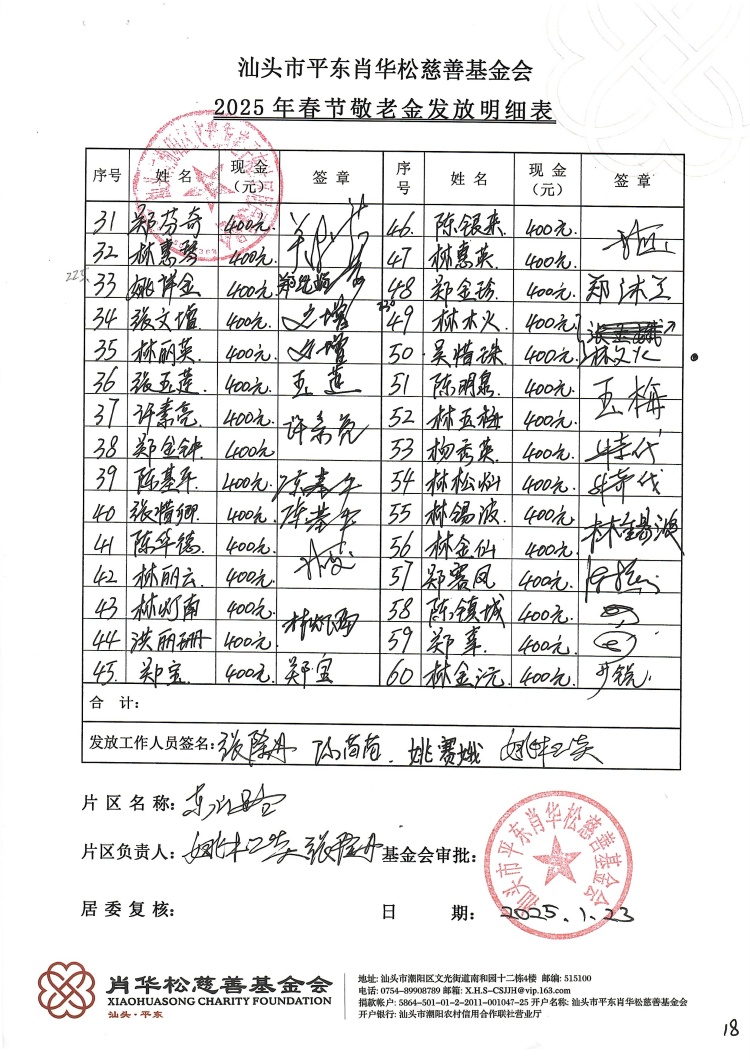 汕头市平东肖华松慈善基金会
2025年春节敬老金发放明细表
序号 姓名 现金（元） 签章 序号 姓名 现金（元） 签章
31 郑芬奇 400元. 46. 陈银来 400元.
32 林惠琴 400元. 47 林惠英. 400元.
225. 33 姚祥金 400元. 48 郑金珍. 400元. 郑沐玉
34 张文增. 400元. 文增 230 49 林木火 400元.
35 林丽英. 400元. 文增 50. 吴惜珠. 400元. 林文火
36 张玉莲. 400元. 玉莲 51 陈明泉. 400元. 玉梅
37 许素亮. 400元. 许素亮 52 林玉梅 400元.
38 郑金钟. 400元 53 杨秀英. 400元.
39 陈基平. 400元. 陈基平 54 林松灿 400元.
40 张惜卿. 400元. 陈基平 55 林锡波. 400元. 林锡波
41 陈华德. 400元. 56 林金仙 400元.
42 林丽云. 400元. 57 郑赛凤 400元.
43 林灯南 400元. 林灯南 58 陈镇城 400元.
44 洪丽珊 400元. 59 郑 400元.
45. 郑宝. 400元. 郑宝 60 林金沅. 400元.
合 计：
发放工作人员签名： 姚赛娥
片区名称：
片区负责人： 基金会审批：
汕头市平东肖华松慈善基金会
居委复核： 日 期： 2025.1.23
肖华松慈善基金会
XIAOHUASONG CHARITY FOUNDATION
汕头·平东
地址: 汕头市潮阳区文光街道南和园十二栋4楼 邮编: 515100
电话: 0754-89908789 邮箱: X.H.S-CSJJH@vip.163.com
捐款帐户: 5864-501-01-2-2011-001047-25 开户名称: 汕头市平东肖华松慈善基金会
开户银行: 汕头市潮阳农村信用合作联社营业厅
18